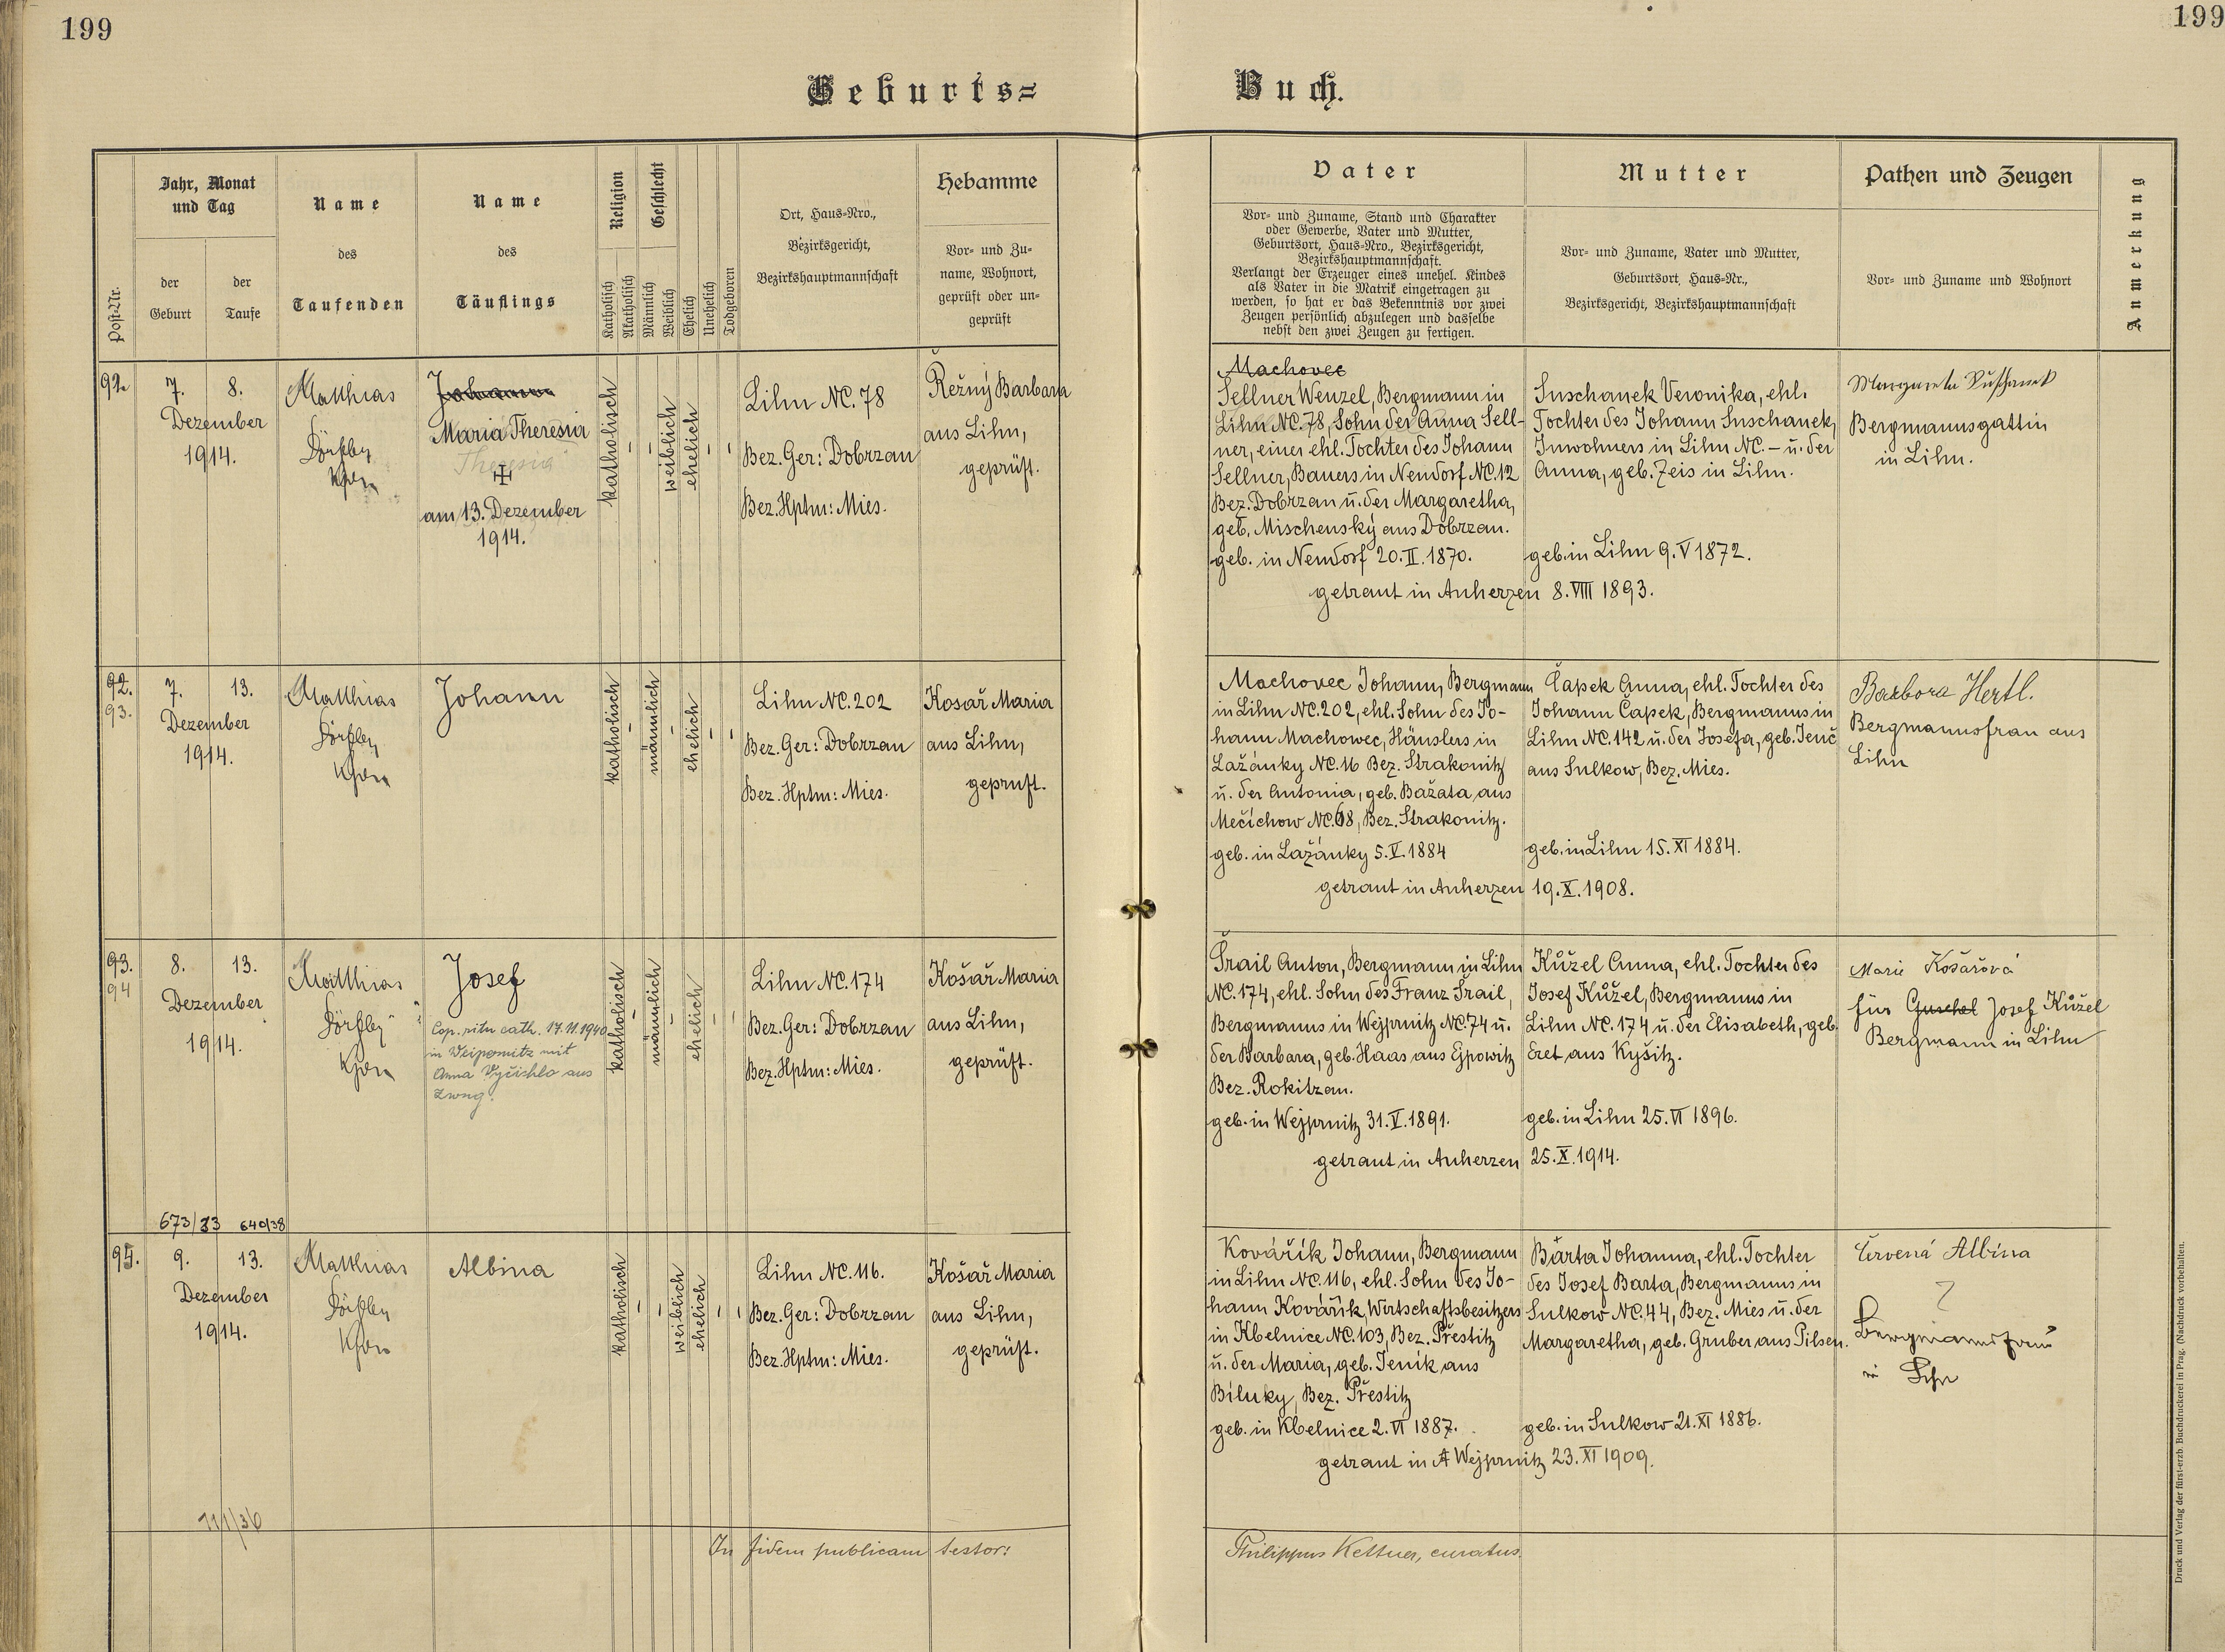 199
199
Geburts=
Buch.
Post-Nr.
Jahr, Monat
und Tag
der
Geburt
der
Taufe
Name
des
Taufenden
Name
des
Täuflings
Religion
Katholisch
Akatholisch
Geschlecht
Männlich
Weiblich
Ehelich
Unehelich
Todgeboren
Ort, Haus-Nro.,
Bezirksgericht,
Bezirkshauptmannschaft
Hebamme
Vor- und Zu-
name, Wohnort,
geprüft oder un-
geprüft
Vater
Vor- und Zuname, Stand und Charakter
oder Gewerbe, Vater und Mutter,
Geburtsort, Haus-Nro., Bezirksgericht,
Bezirkshauptmannschaft.
Verlangt der Erzeuger eines unehel. Kindes
als Vater in die Matrik eingetragen zu
werden, so hat er das Bekenntnis vor zwei
Zeugen persönlich abzulegen und dasselbe
nebst den zwei Zeugen zu fertigen.
Mutter
Vor- und Zuname, Vater und Mutter,
Geburtsort, Haus-Nr.,
Bezirksgericht, Bezirkshauptmannschaft
Pathen und Zeugen
Vor- und Zuname und Wohnort
Anmerkung
92
7.
8.
Dezember
1914.
Matthias
Johann
Maria Theresia
Theresia
am 13. Dezember
1914.
katholisch
weiblich
ehelich
Lihn NC. 78
Bez. Ger: Dobrzan
Bez. Hptm: Mies.
Řežný Barbara
aus Lihn,
geprüft.
Machovec
Sellner Wenzel, Bergmann in
Lihn NC. 78, Sohn der Anna Sell-
ner, einer ehl. Tochter des Johann
Sellner, Bauers in Neudorf NC. 12
Bez. Dobrzan u. der Margaretha,
geb. Mischenský aus Dobrzan.
geb. in Neudorf 20. II. 1870.
Suschanek Veronika, ehl.
Tochter des Johann Suschanek,
Inwohners in Lihn NC. – u. der
Anna, geb. Zeis in Lihn.
geb. in Lihn 9. V 1872.
getraut in Anherzen 8. VIII 1893.
Margareta Suschanek
Bergmannsgattin
in Lihn.
92.
93.
7.
13.
Dezember
1914.
Matthias
Johann
katholisch
männlich
ehelich
Lihn NC. 202
Bez. Ger: Dobrzan
Bez. Hptm: Mies.
Kosař Maria
aus Lihn,
geprüft.
Machovec Johann, Bergmann
in Lihn NC. 202, ehl. Sohn des Jo-
hann Machowec, Häuslers in
Lažánky NC. 16 Bez. Strakonitz
u. der Antonia, geb. Bažata aus
Mečichow NC. 68, Bez. Strakonitz.
geb. in Lažánky 5. V. 1884
Čapek Anna, ehl. Tochter des
Johann Čapek, Bergmanns in
Lihn NC. 142 u. der Josefa, geb. Jenč
aus Sulkow, Bez. Mies.
geb. in Lihn 15. XI 1884.
getraut in Anherzen 19. X. 1908.
Barbora Hertl.
Bergmannsfrau aus
Lihn
93.
94
8.
13.
Dezember
1914.
Matthias
Josef
Cop. ritu cath. 17.11.1940
in Weipernitz mit
Anna Vyčichlo aus
Zwug.
katholisch
männlich
ehelich
Lihn NC. 174
Bez. Ger: Dobrzan
Bez. Hptm: Mies.
Košař Maria
aus Lihn,
geprüft.
Šrail Anton, Bergmann in Lihn
NC. 174, ehl. Sohn des Franz Šrail,
Bergmanns in Wejprnitz NC. 74 u.
der Barbara, geb. Haas aus Ejpowitz
Bez. Rokitzan.
geb. in Wejprnitz 31. V. 1891.
Kůžel Anna, ehl. Tochter des
Josef Kůžel, Bergmanns in
Lihn NC. 174 u. der Elisabeth, geb.
Eret aus Kyšitz.
geb. in Lihn 25. VI 1896.
getraut in Anherzen 25. X. 1914.
Marie Košařová
für Guschel Josef Kůžel
Bergmann in Lihn
673/33 640/38
95.
9.
13.
Dezember
1914.
Matthias
Albina
katholisch
weiblich
ehelich
Lihn NC. 116.
Bez. Ger: Dobrzan
Bez. Hptm: Mies.
Košař Maria
aus Lihn,
geprüft.
Kovářík Johann, Bergmann
in Lihn NC. 116, ehl. Sohn des Jo-
hann Kovářík, Wirtschaftsbesitzers
in Kbelnice NC. 103, Bez. Přestitz
u. der Maria, geb. Jeník aus
Biluky, Bez. Přestitz
geb. in Kbelnice 2. VI 1887.
Bárta Johanna, ehl. Tochter
des Josef Barta, Bergmanns in
Sulkow NC. 44, Bez. Mies u. der
Margaretha, geb. Gruber aus Pilsen.
geb. in Sulkow 21. XI 1886.
getraut in A Wejprnitz 23. XI 1909.
Červená Albína
Bergmannsfrau
in Lihn
111/36
In fidem publicam testor:
Philippus Kettner, curatus.
Druck und Verlag der fürst-erzb. Buchdruckerei in Prag. (Nachdruck vorbehalten.